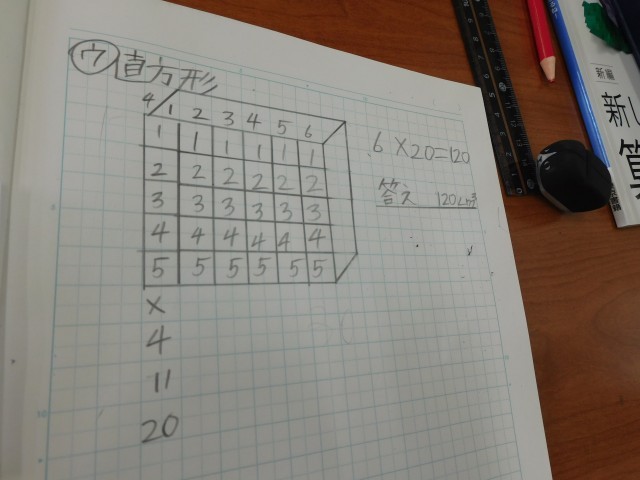 ウ 直方形
4 1 2 3 4 5 6
1 1 1 1 1 1
2 2 2 2 2 2
3 3 3 3 3 3
4 4 4 4 4 4
5 5 5 5 5 5
×
4
11
20
6×20=120
答え 120cm³
新編
新し
算